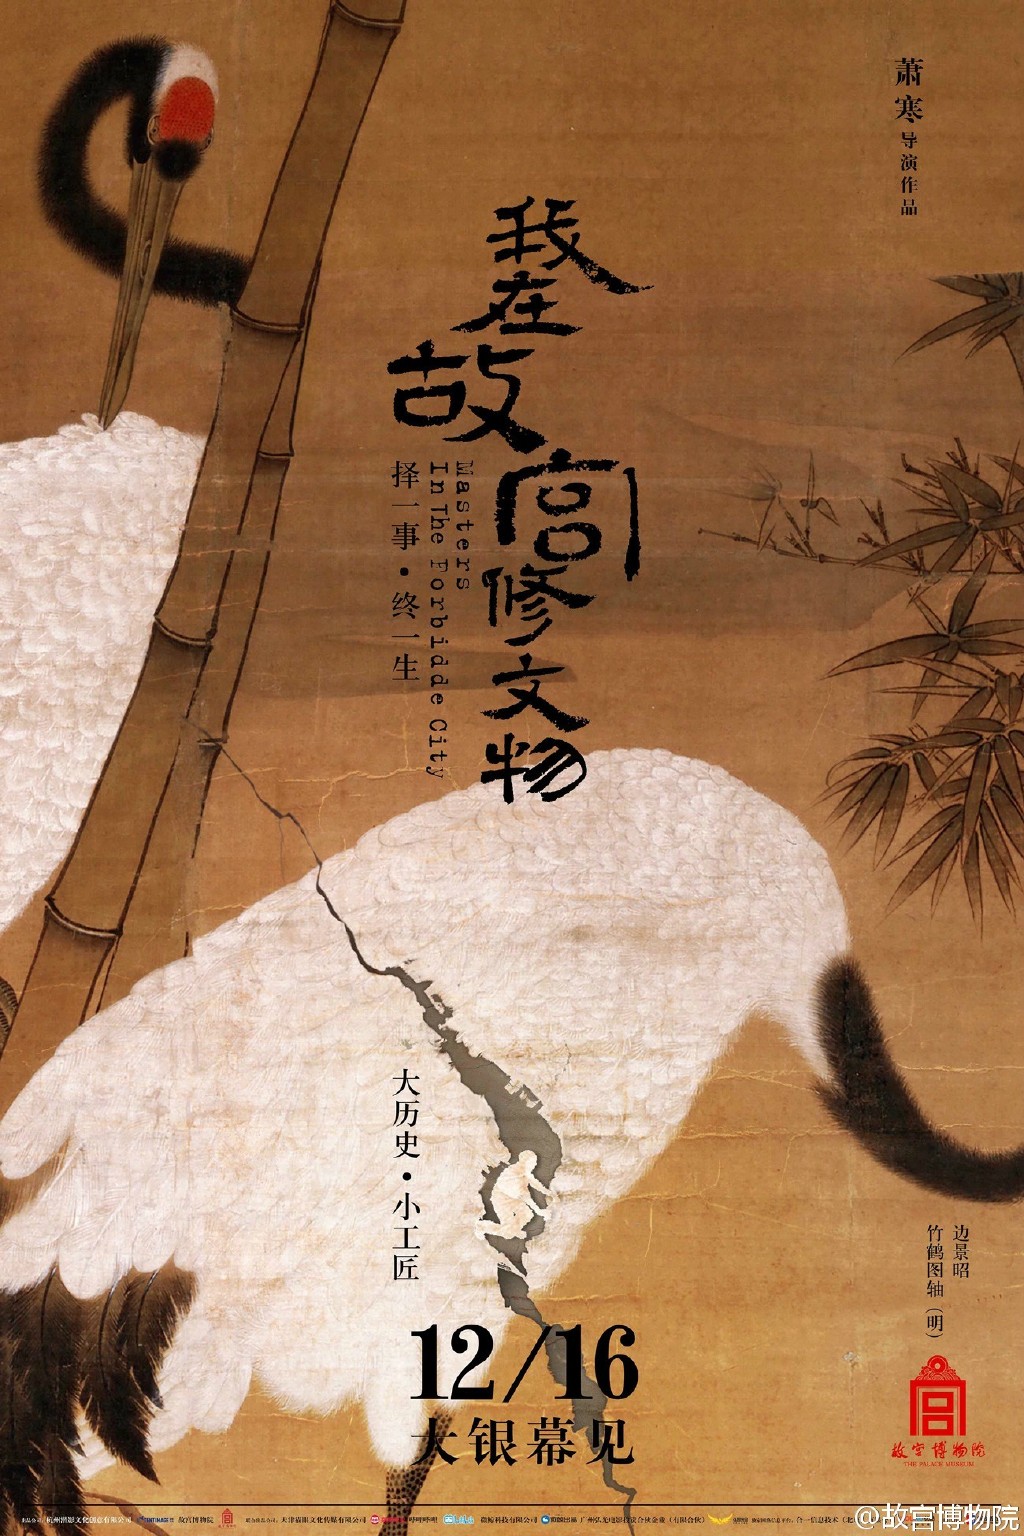 萧寒导演作品
我在故宫修文物
Masters
In The Forbidde City
择一事·终一生
大历史·小工匠
12/16
大银幕见
边景昭
竹鹤图轴(明)
宫
故宫博物院
THE PALACE MUSEUM
@故宫博物院